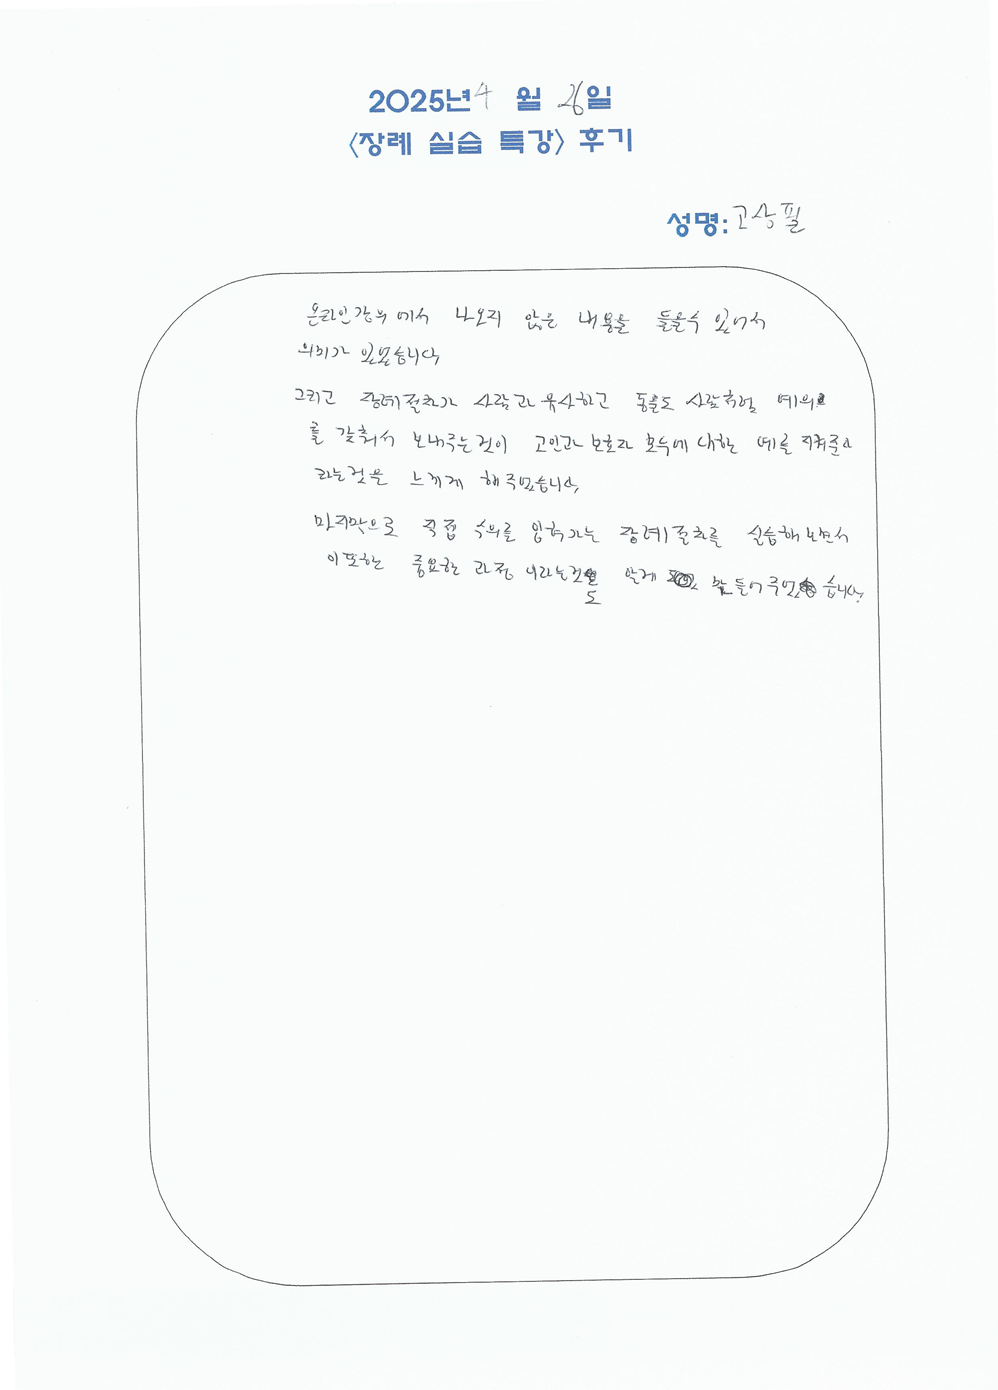 2025년 4 월 26일
<장례 실습 특강> 후기
성명: 고상필
온라인강의에서 나오지 않은 내용을 들을수 있어서
의미가 있었습니다
그리고 장례절차가 사람과 유사하고 동물도 사람처럼 예의
를 갖춰서 보내주는것이 고인과 보호자 모두에 대한 예를 지켜준다
라는것을 느끼게 해주었습니다
마지막으로 직접 수의를 입혀가는 장례절차를 실습해보면서
이또한 중요한 과정 이라는것도 알게 만들어주었습니다.